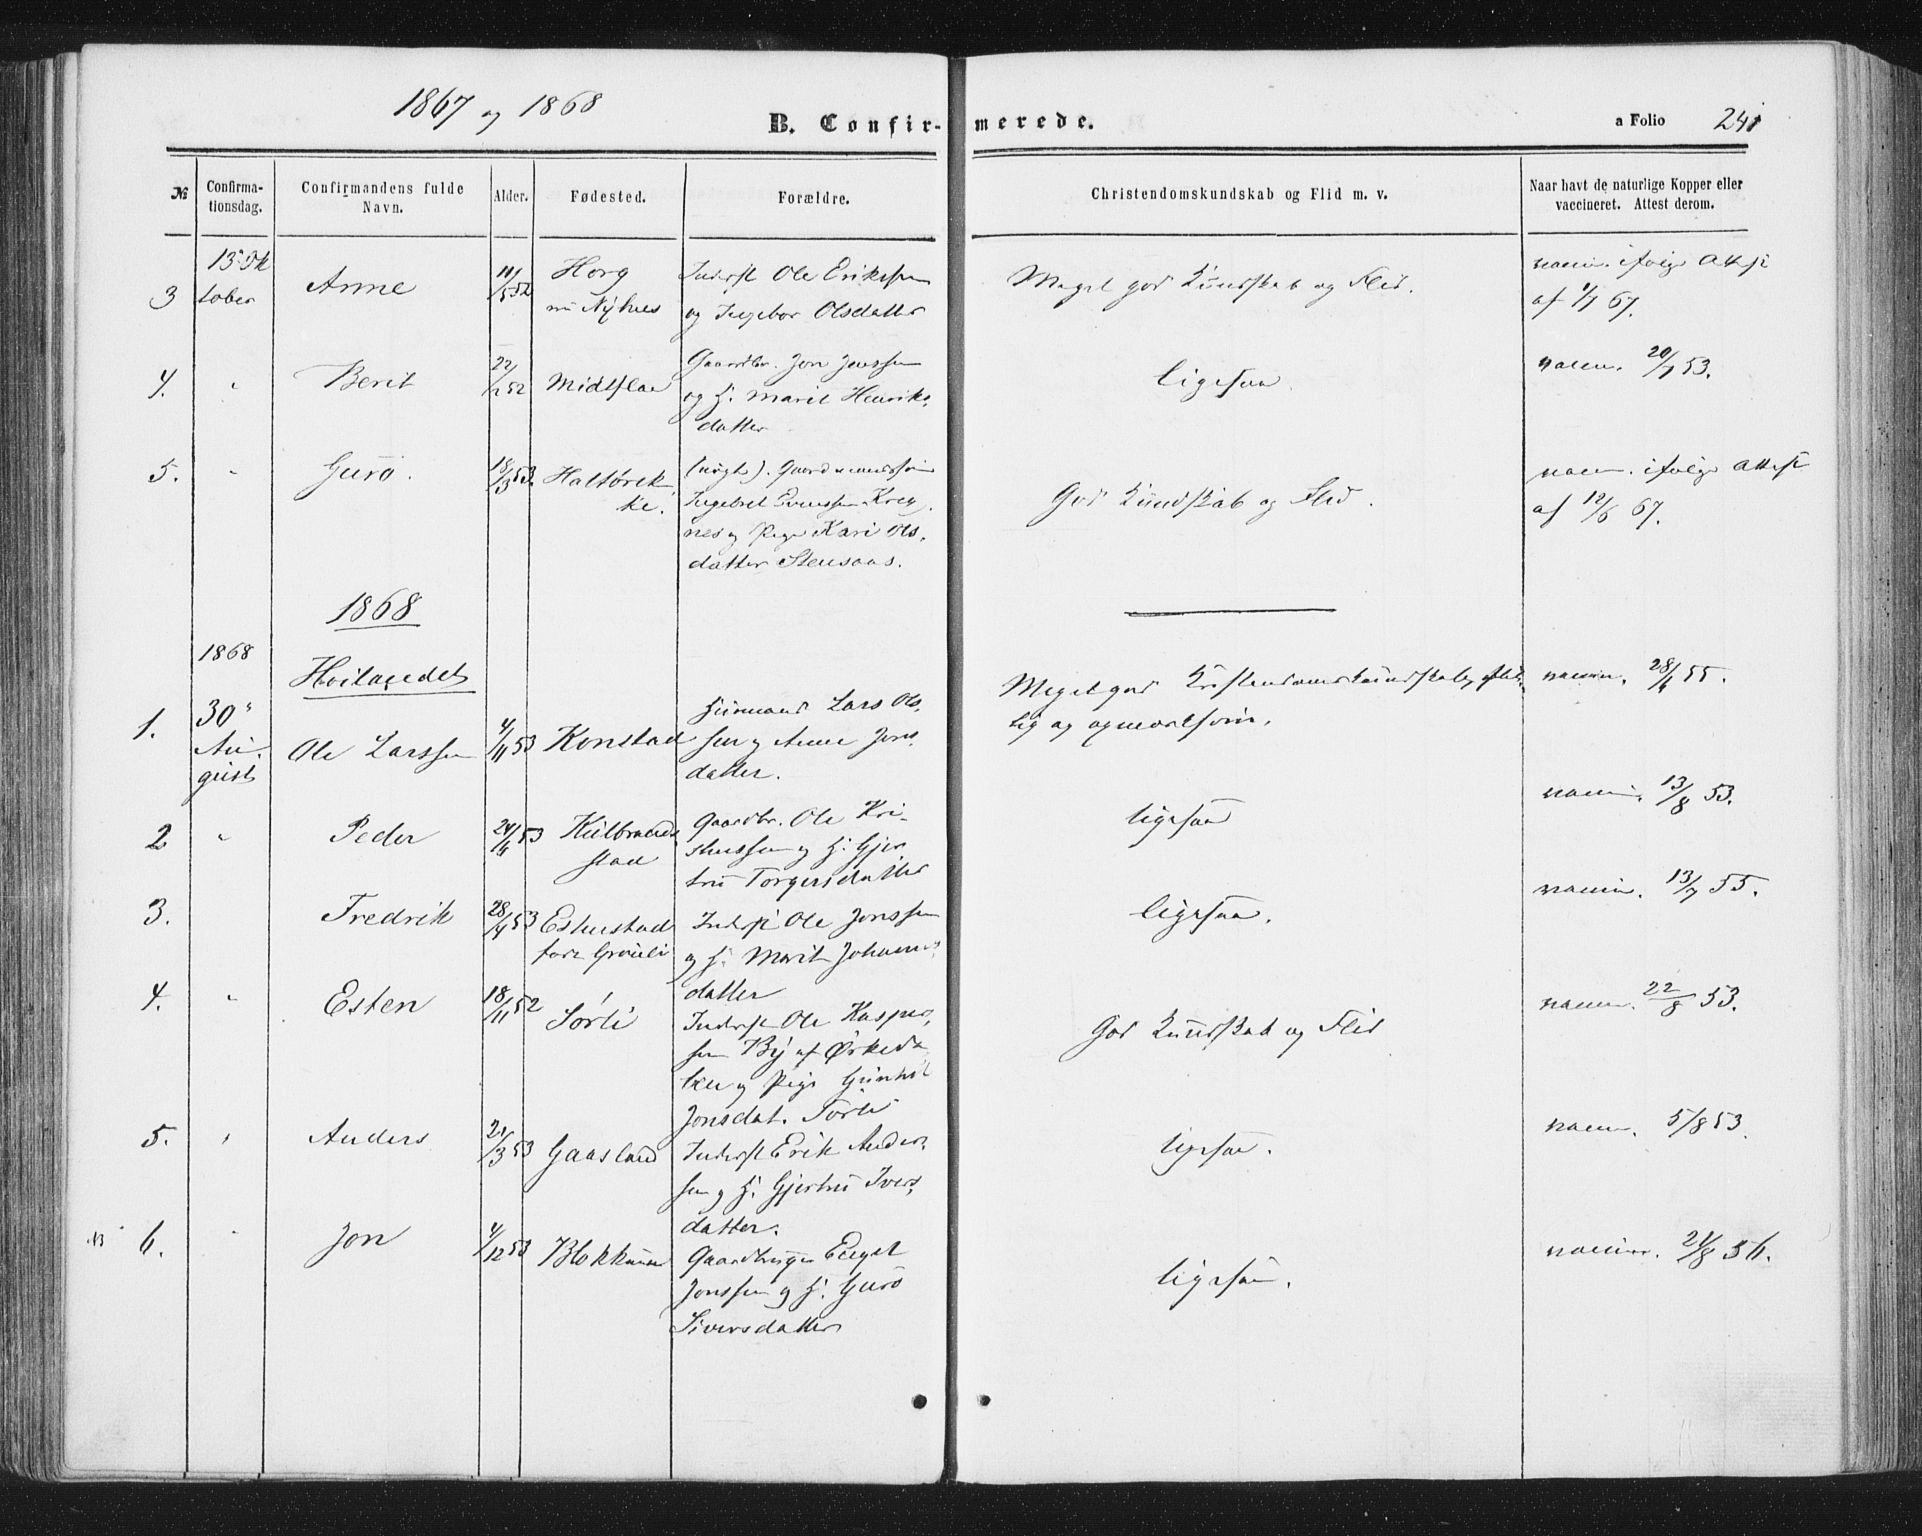 1867 og 1868
B. Confirmerede.
a Folio 241
№
Confirma-
tionsdag.
Confirmandens fulde
Navn.
Alder.
Fødested.
Forældre.
Christendomskundskab og Flid m. v.
Naar havt de naturlige Kopper eller
vaccineret. Attest derom.
3
13 Ok
tober
Anne
11/5 52
Horg
nu Nyhus
Inderst Ole Eriksen
og Ingebor Olsdatter
Meget god Kundskab og Flid.
vaccin. ifølge Attest
af 1/7 67.
4.
"
Berit
22/12 52
Midtflaa
Gaardbr. Jon Jonssen
og H. Marit Henriks-
datter
ligesaa
vaccin. 20/7 53.
5.
"
Guro.
18/3 53.
Haltørik-
ke.
(uægte). Gaardmandssøn
Ingebret Evenssen Kreg-
nes og Pige Kari Ols-
datter Stensaas.
God Kundskab og Flid.
vaccin. ifølge Attest
af 12/6 67.
1868
1868
Hovlagedet
1.
30
Au-
gust
Ole Larssen
4/11 53
Konstad
Huusmand Lars Ols-
sen og Anne Jons-
datter.
Meget god Kristendomskundskab, flit-
tig og opmærksom.
vaccin. 28/6 55.
2
"
Peder
24/4 53
Kulbrands-
stad
Gaardbr. Ole Kri-
stenssen og H. Gjer-
tru Torgersdatter
ligesaa
vaccin. 13/8 53.
3.
Fredrik
28/4 53
Estenstad
Inderst Ole Jonssen
og H. Marit Johannes-
datter
ligesaa.
vaccin. 13/7 55.
4.
"
Esten
18/11 52
Sørli
Inderst Ole Kaspers-
sen By af Ørkeda-
len og Pige Gunhil
Jonsdat. Sørli
God Kundskab og Flid
vaccin. 22/8 53.
5.
"
Anders
21/3 53
Gaasland
Inderst Erik Anders-
sen og H. Gjertru Ivers-
datter.
ligesaa.
vaccin. 5/8 53.
NB
6.
"
Jon
4/12 53
Blekkum
Gaardbruger Engel
Jonssen og H. Guro
Siversdatter
ligesaa.
vaccin. 24/8 56.